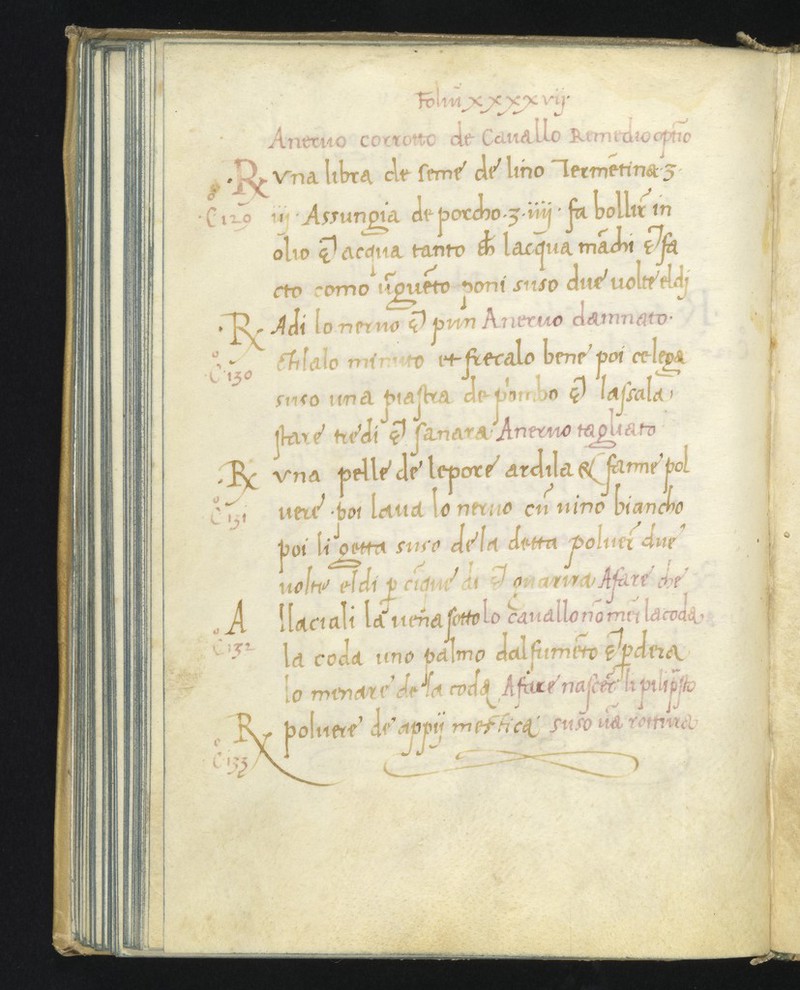 Foliũ xxxxvij.
Aneruo corrotto de Cauallo Remedio optĩo
℞ vna libra de seme de lino Termẽtina ʒ
C° 129 iij Assungia de porcho ʒ iiij fa bollir in
olio & acqua tanto ch lacqua mãchi & fa
cto como ũguẽto poni suso due uolte eldj
℞ Adi lo neruo & pun Aneruo damnato
C° 130 minuto et frecalo bene poi ce lega
suso una piastra de piombo & lassala
stare tre di & sanara Aneruo tagliato
℞ vna pelle de lepore ardila & fanne pol
C° 131 uere poi laua lo neruo cũ uino biancho
poi li getta suso de la detta poluer due
uolte eldi p cĩque di & guarira Afare che
A llaciali la uena sotto lo cauallo nõ meñ la coda
C° 132 la coda uno palmo dal fumẽto & pdera
lo menare de la coda Afare nascer li pili psto
℞ poluere de appij mestica suso ũa rottura
C° 133